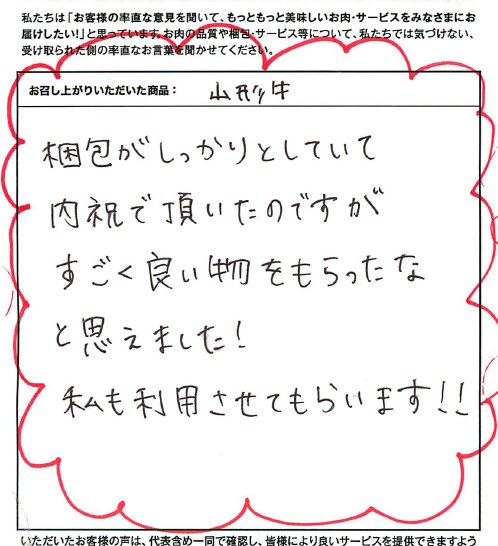 私たちは「お客様の率直な意見を聞いて、もっともっと美味しいお肉・サービスをみなさまにお
届けしたい!」と思っています。お肉の品質や梱包・サービス等について、私たちでは気づけない、
受け取られた側の率直なお言葉を聞かせてください。
お召し上がりいただいた商品： 山形牛
梱包がしっかりとしていて
内祝で頂いたのですが
すごく良い物をもらったな
と思えました!
私も利用させてもらいます!!
いただいたお客様の声は、代表含め一同で確認し、皆様により良いサービスを提供できますよう